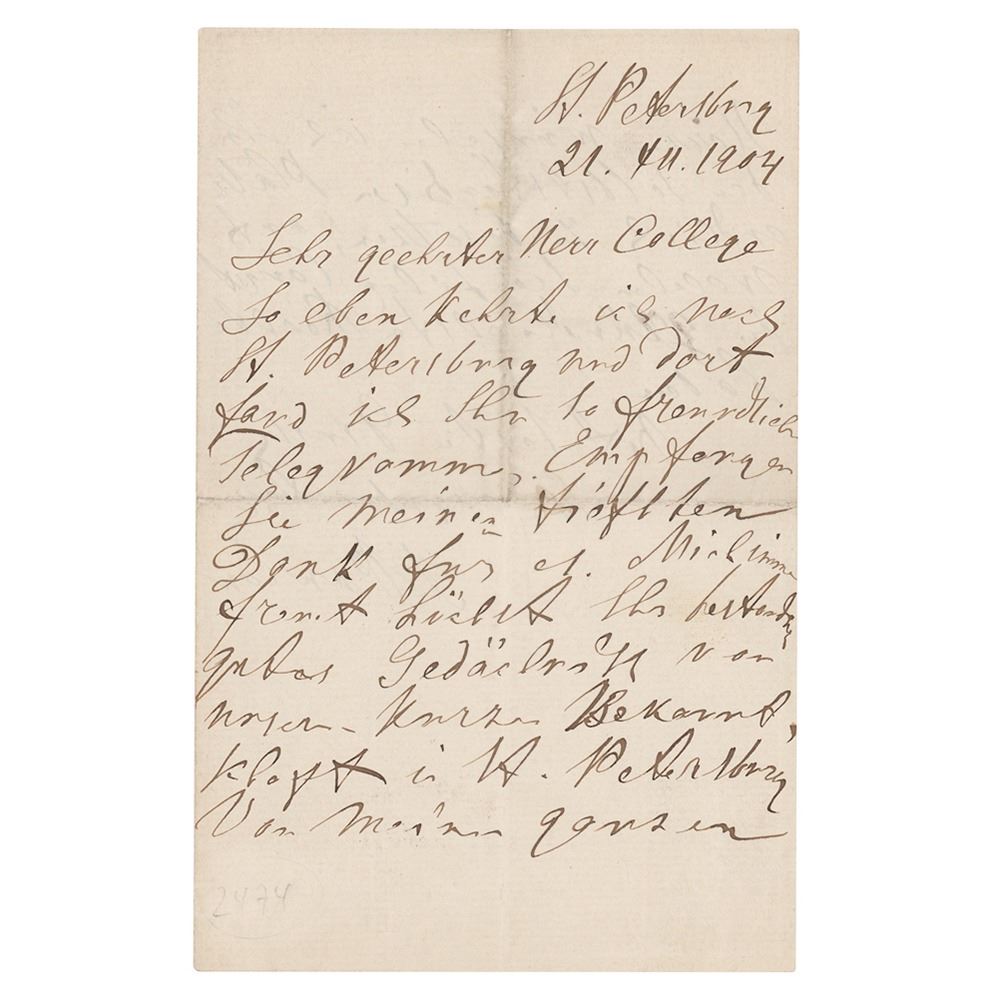 St. Petersburg
21. XII. 1904
Sehr geehrter Herr College
So eben kehrte ich nach
St. Petersburg und dort
fand ich Ihr so freundlich
Telegramm. Empfangen
Sie meinen tiefsten
Dank für es. Mich imme
freut höchst Ihr beständig
gutes Gedächniss von
unsern kurzen Bekannt,
schaft in St. Petersburg
Von meinen ganzen
2474